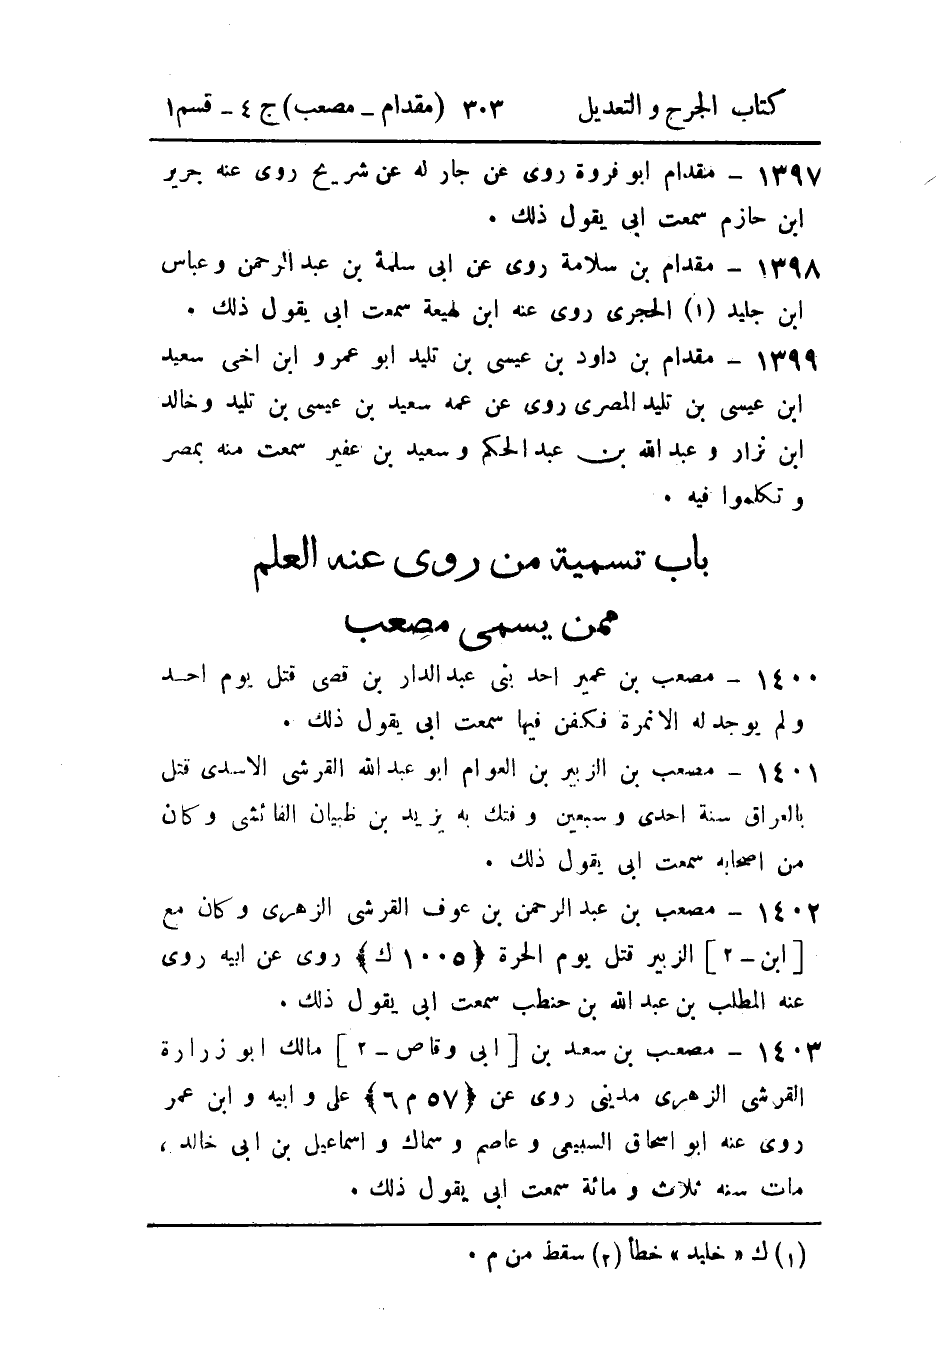 كتاب الجرح و التعديل ٣٠٣ (مقدام ـ مصعب) ج ٤ ـ قسم ١
١٣٩٧ ـ مقدام ابو فروة روى عن جار له عن شريح روى عنه جرير
ابن حازم سمعت ابى يقول ذلك .
١٣٩٨ ـ مقدام بن سلامة روى عن ابى سلمة بن عبد الرحمن و عباس
ابن جليد (١) الحجرى روى عنه ابن لهيعة سمعت ابى يقول ذلك .
١٣٩٩ ـ مقدام بن داود بن عيسى بن تليد ابو عمرو ابن اخى سعيد
ابن عيسى بن تليد المصرى روى عن عمه سعيد بن عيسى بن تليد و خالد
ابن نزار و عبد الله بن عبد الحكم و سعيد بن عفير سمعت منه بمصر
و تكلموا فيه .
باب تسمية من روى عنه العلم
ممن يسمى مصعب
١٤٠٠ ـ مصعب بن عمير احد بنى عبد الدار بن قصى قتل يوم احد
و لم يوجد له الا نمرة فكفن فيها سمعت ابى يقول ذلك .
١٤٠١ ـ مصعب بن الزبير بن العوام ابو عبد الله القرشى الاسدى قتل
بالعراق سنة احدى و سبعين و فتك به يزيد بن ظبيان الفائشى و كان
من اصحابه سمعت ابى يقول ذلك .
١٤٠٢ ـ مصعب بن عبد الرحمن بن عوف القرشى الزهرى و كان مع
[ابن ـ ٢] الزبير قتل يوم الحرة ﴿١٠٠٥ ك﴾ روى عن ابيه روى
عنه المطلب بن عبد الله بن حنطب سمعت ابى يقول ذلك .
١٤٠٣ ـ مصعب بن سعد بن [ابى وقاص ـ ٢] مالك ابو زرارة
القرشى الزهرى مدينى روى عن ﴿٥٧ م ٦﴾ على و ابيه و ابن عمر
روى عنه ابو اسحاق السبيعى و عاصم و سماك و اسماعيل بن ابى خالد ،
مات سنه ثلاث و مائة سمعت ابى يقول ذلك .
(١) ك « خليد » خطأ (٢) سقط من م .